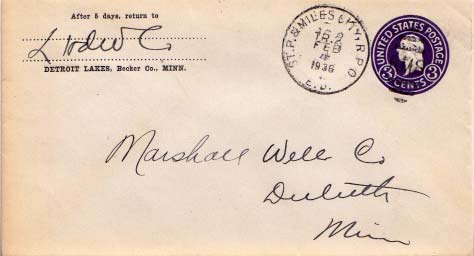 After 5 days, return to
L Hdw Co
DETROIT LAKES, Becker Co., MINN.
ST.P. & MILES CITY, R.P.O.
162
FEB
4
1936
E.D.
UNITED STATES POSTAGE
3 CENTS 3
Marshall Well Co
Duluth
Minn